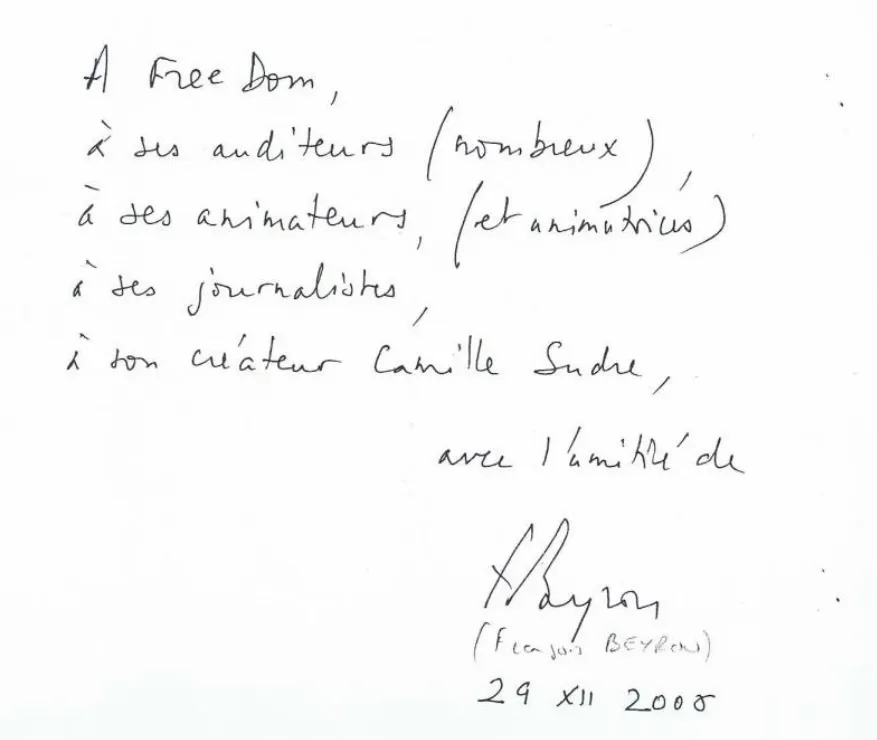 A Free Dom,
à ses auditeurs (nombreux),
à ses animateurs, (et animatrices)
à ses journalistes,
à son créateur Camille Sudre,
avec l'amitié de
(François BEYROU)
29 XII 2008